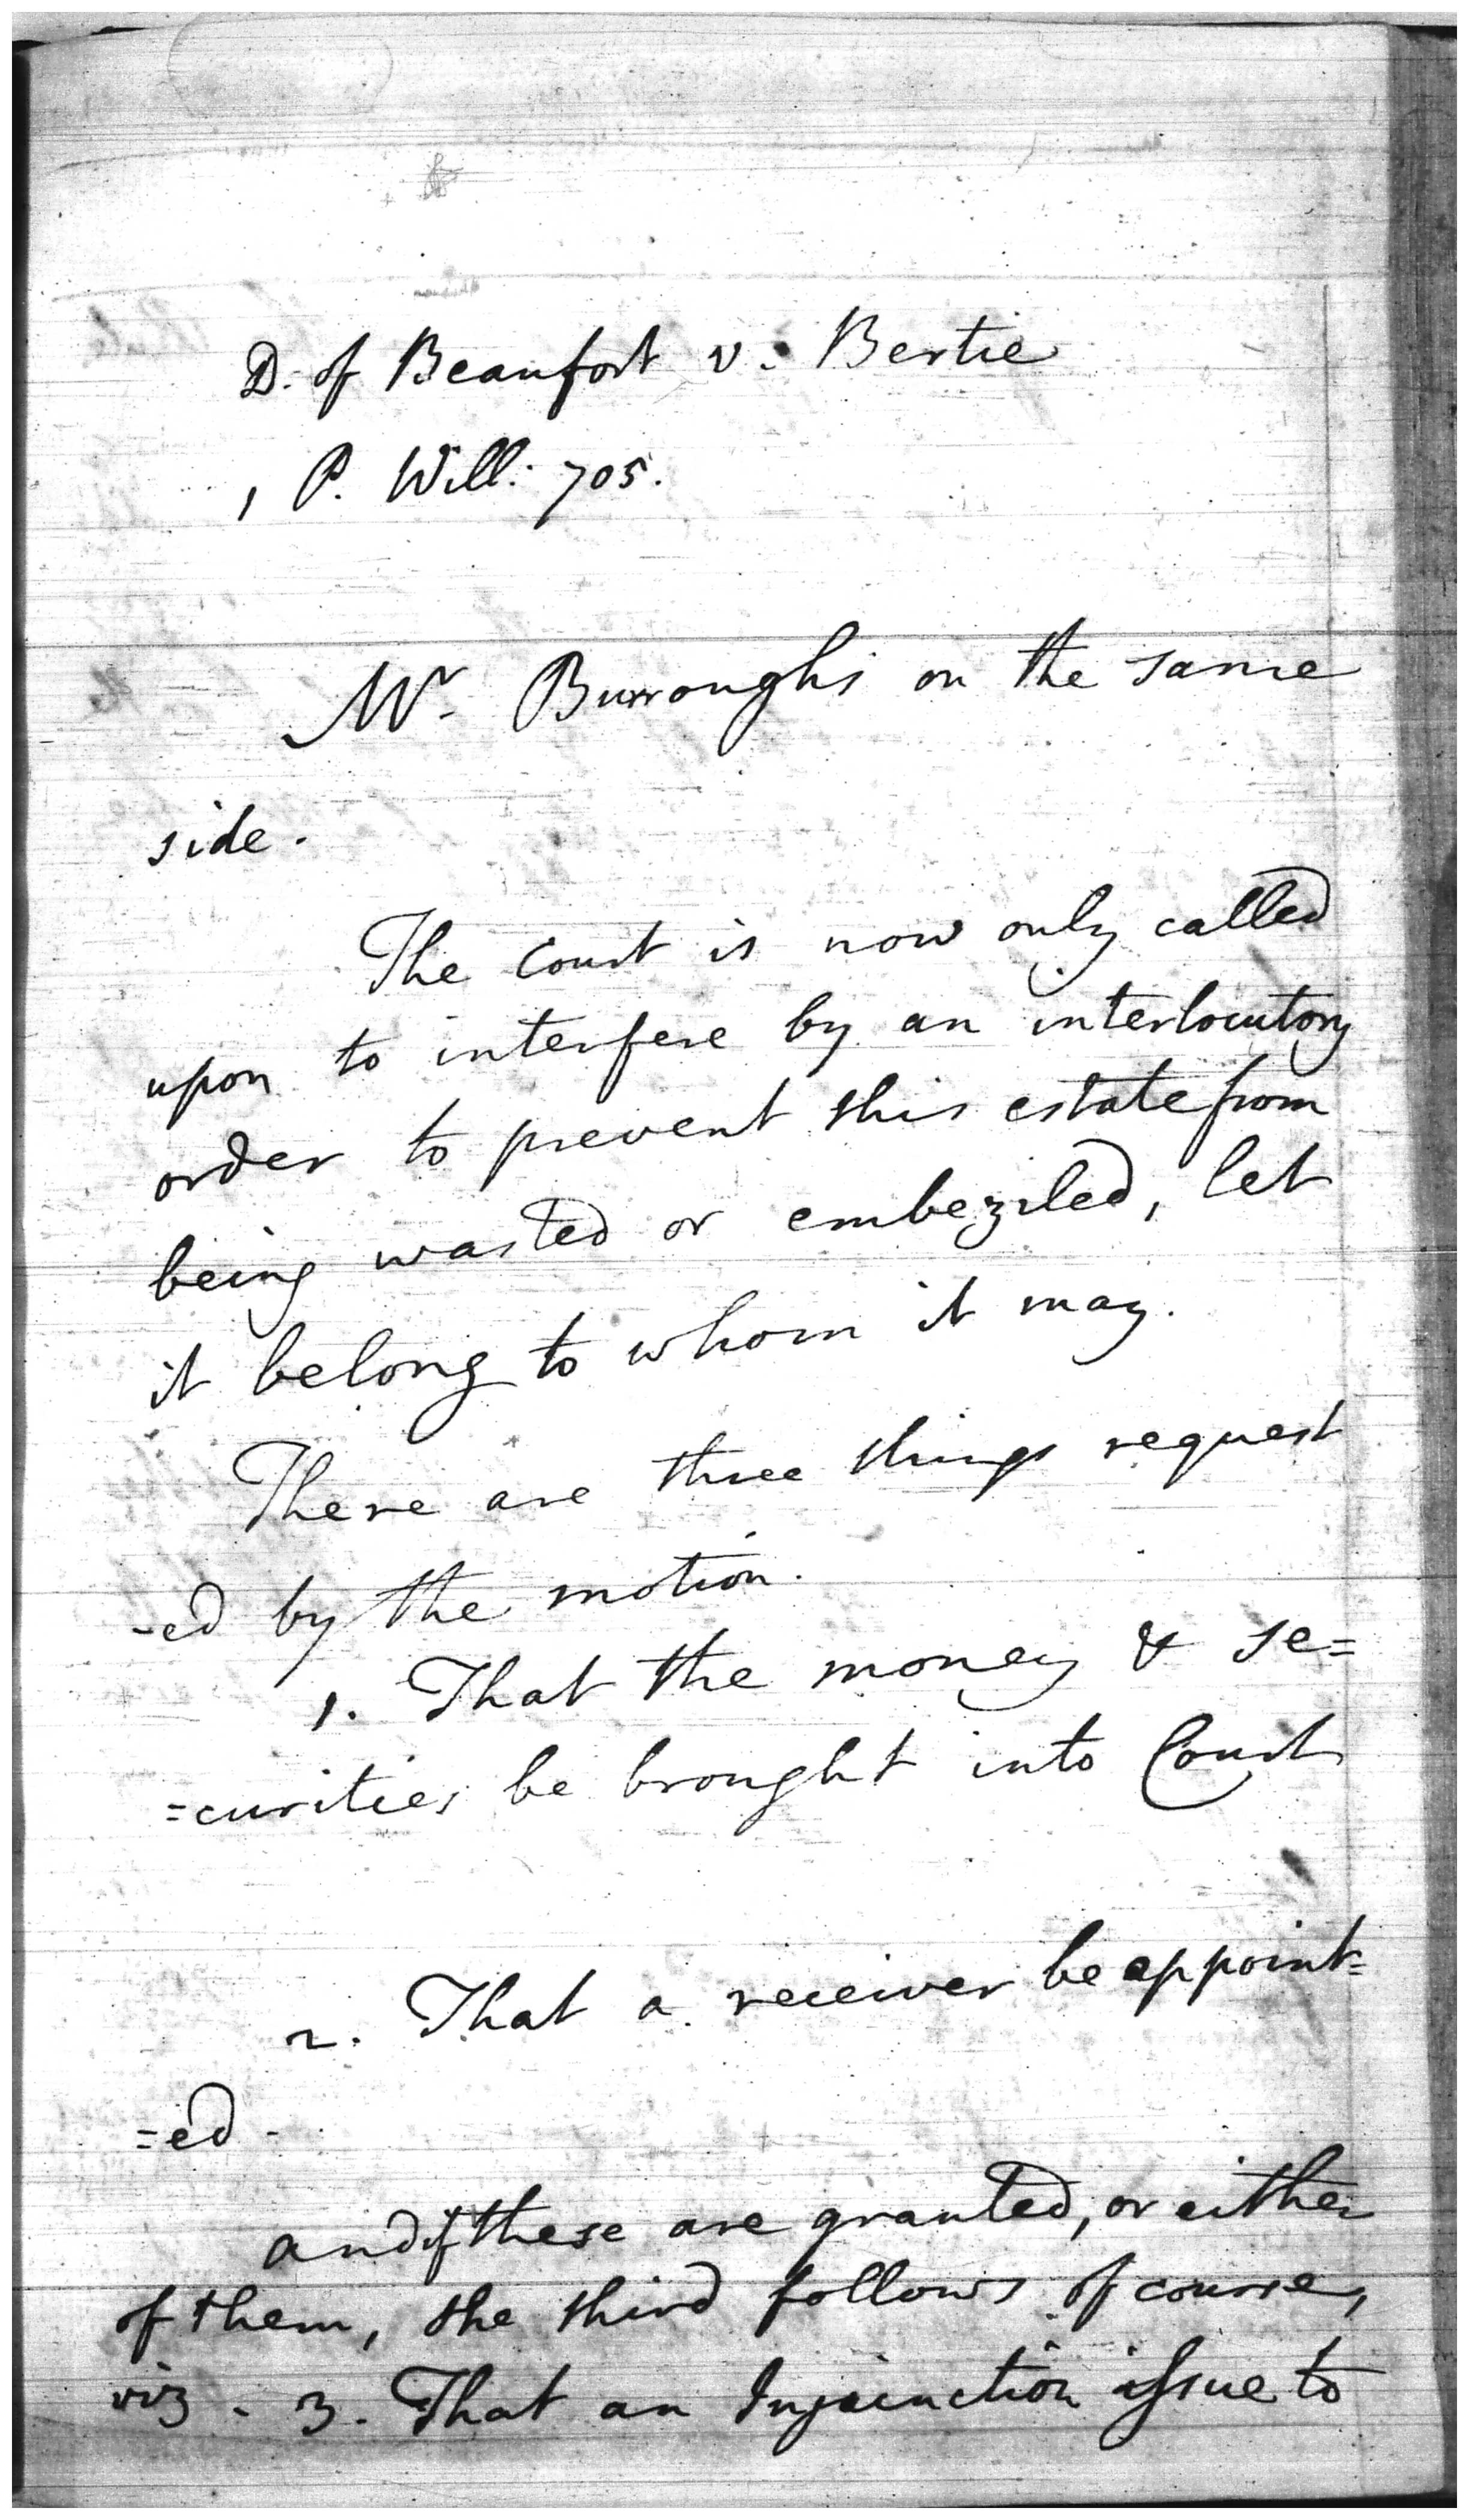 D. of Beaufort v. Bertie
1 P. Will: 705.
Mr. Burroughs on the same
side.
The Court is now only called
upon to interfere by an interlocutory
order to prevent this estate from
being wasted or embezzled, let
it belong to whom it may.
There are three things request
-ed by the motion.
1. That the money & se=
=curities be brought into Court
2. That a receiver be appoint=
=ed.
and if these are granted, or either
of them, the third follows of course,
viz. 3. That an Injunction issue to